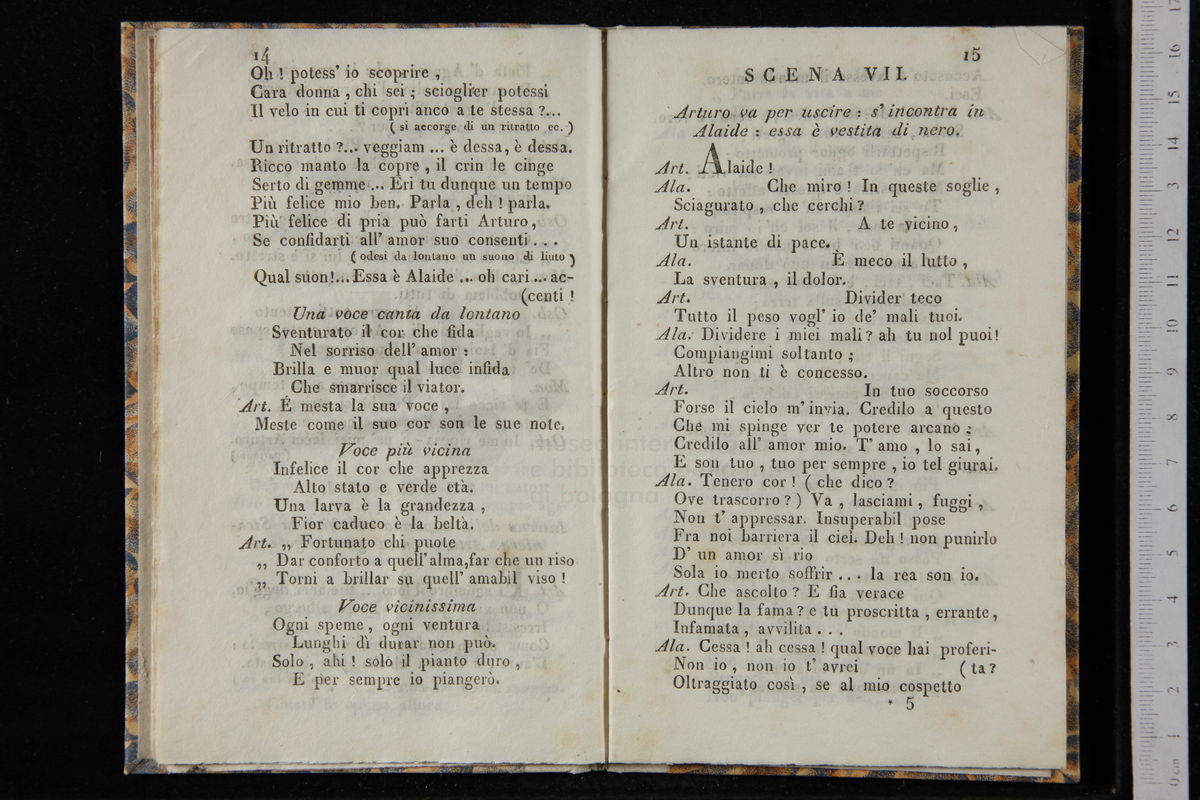 14
Oh ! potess' io scoprire ,
Cara donna , chi sei ; scioglier potessi
Il velo in cui ti copri anco a te stessa ?...
( si accorge di un ritratto ec. )
Un ritratto ?... veggiam ... è dessa, è dessa.
Ricco manto la copre , il crin le cinge
Serto di gemme ... Eri tu dunque un tempo
Più felice mio ben. Parla , deh ! parla.
Più felice di pria può farti Arturo,
Se confidarti all' amor suo consenti . . .
( odesi da lontano un suono di liuto )
Qual suon!... Essa è Alaide ... oh cari ... ac-
(centi !
Una voce canta da lontano
Sventurato il cor che fida
Nel sorriso dell' amor :
Brilla e muor qual luce infida
Che smarrisce il viator.
Art. É mesta la sua voce ,
Meste come il suo cor son le sue note.
Voce più vicina
Infelice il cor che apprezza
Alto stato e verde età.
Una larva è la grandezza ,
Fior caduco è la beltà.
Art. ,, Fortunato chi puote
,, Dar conforto a quell' alma,far che un riso
,, Torni a brillar su quell' amabil viso !
Voce vicinissima
Ogni speme , ogni ventura
Lunghi dì durar non può.
Solo , ahi ! solo il pianto duro ,
E per sempre io piangerò.
15
SCENA VII.
Arturo va per uscire : s' incontra in
Alaide : essa è vestita di nero.
Art. Alaide !
Ala. Che miro ! In queste soglie ,
Sciagurato , che cerchi ?
Art. A te vicino ,
Un istante di pace.
Ala. È meco il lutto ,
La sventura , il dolor.
Art. Divider teco
Tutto il peso vogl' io de' mali tuoi.
Ala. Dividere i miei mali ? ah tu nol puoi!
Compiangimi soltanto ;
Altro non ti è concesso.
Art. In tuo soccorso
Forse il cielo m' invia. Credilo a questo
Che mi spinge ver te potere arcano ;
Credilo all' amor mio. T' amo , lo sai ,
E son tuo , tuo per sempre , io tel giurai.
Ala. Tenero cor ! ( che dico ?
Ove trascorro ? ) Va , lasciami , fuggi ,
Non t' appressar. Insuperabil pose
Fra noi barriera il ciel. Deh ! non punirlo
D' un amor sì rio
Sola io merto soffrir . . . la rea son io.
Art. Che ascolto ? E fia verace
Dunque la fama ? e tu proscritta , errante,
Infamata , avvilita . . .
Ala. Cessa ! ah cessa ! qual voce hai proferi-
Non io , non io t' avrei ( ta ?
Oltraggiato così , se al mio cospetto
* 5